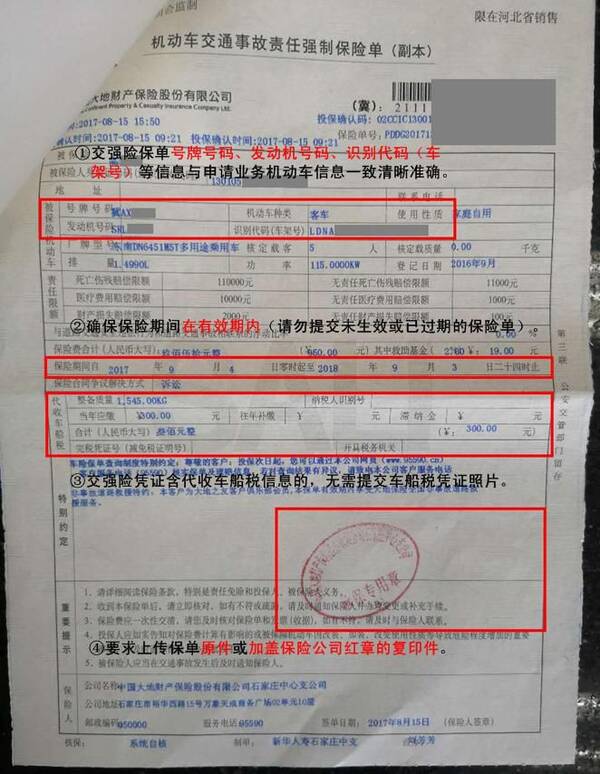 限在河北省销售
机动车交通事故责任强制保险单（副本）
大地财产保险股份有限公司
Continent Property & Casualty Insurance Company Ltd.
（冀）：2111
投保确认码：02CCIC13001
2017-08-15 15:50
确认时间：2017-08-15 09:21 投保确认时间：2017-08-15 09:21 保险单号：PDDG20171
①交强险保单号牌号码、发动机号码、识别代码（车
架号）等信息与申请业务机动车信息一致清晰准确。
地 址 130105
被保险机动车
号牌号码 冀AX 机动车种类 客车 使用性质 家庭自用
发动机号码 SHL 识别代码(车架号) LDNA
厂牌型号 东南DN6451M5T多用途乘用车 核定载客 5 人 核定载质量 0.00 千克
排 量 1.4990L 功 率 115.0000KW 登记日期 2016年9月
责任限额
死亡伤残赔偿限额 110000元 无责任死亡伤残赔偿限额 11000元
医疗费用赔偿限额 10000元 无责任医疗费用赔偿限额 1000元
财产损失赔偿限额 2000元 无责任财产损失赔偿限额 100元
②确保保险期间在有效期内（请勿提交未生效或已过期的保险单）。
保险费合计(人民币大写)：玖佰伍拾元整 (¥: 950.00 元) 其中救助基金( %) ¥: 19.00 元
保险期间自 2017 年 9 月 4 日零时起至 2018 年 9 月 3 日二十四时止
保险合同争议解决方式 诉讼
代收车船税
整备质量 1,545.00KG 纳税人识别号
当年应缴 ¥:300.00 元 往年补缴 ¥: 元 滞纳金 ¥: 元
合计(人民币大写)：叁佰元整 (¥: 300.00 元)
完税凭证号(减免税证明号) 开具税务机关
③交强险凭证含代收车船税信息的，无需提交车船税凭证照片。
特别约定
第三联 公安交管部门留存
专用章
重要提示
1. 请详细阅读保险条款，特别是责任免除和投保人、被保险人义务。
2. 收到本保险单后，请立即核对，如有不符或疏漏，请及时通知保险人并办理变更或补充手续。
3. 保险费应一次性交清，请您及时核对保险单和发票(收据)，如有不符，请及时与保险人联系。
4. 投保人应如实告知对保险费计算有影响的或被保险机动车因改装、加装、改变使用性质等导致危险程度增加的重要
④要求上传保单原件或加盖保险公司红章的复印件。
5. 被保险人应当在交通事故发生后及时通知保险人。
保险人
公司名称：中国大地财产保险股份有限公司石家庄中心支公司
公司地址：石家庄市裕华西路15号万象天成商务广场02单元10层
邮政编码：050000 服务电话：95590 签单日期：2017年8月15日 (保险人签章)
核保： 系统自核 制单： 新华人寿石家庄中支 经办： 刘芳芳